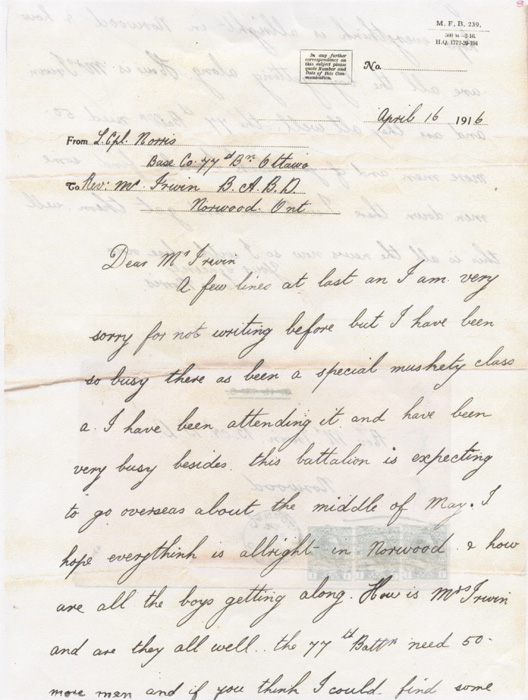 M. F. B. 239.
500 M—2-16.
H.Q. 1772-39-184
In any further
correspondence on
this subject please
quote Number and
Date of this Com-
munication.
No.
April 16 1916
From L. Cpl. Norris
Base Co. 77th Bn Ottawa
To Rev: Mr Irwin B.A.B.D
Norwood. Ont
Dear Mr Irwin
A few lines at last an I am very
sorry for not writing before but I have been
so busy there as been a special muskety class
a. I have been attending it and have been
very busy besides. this battalion is expecting
to go overseas about the middle of May. I
hope everythink is allright in Norwood. & how
are all the boys getting along. How is Mrs Irwin
and are they all well. the 77th Battn need 50
more men and if you think I could find some